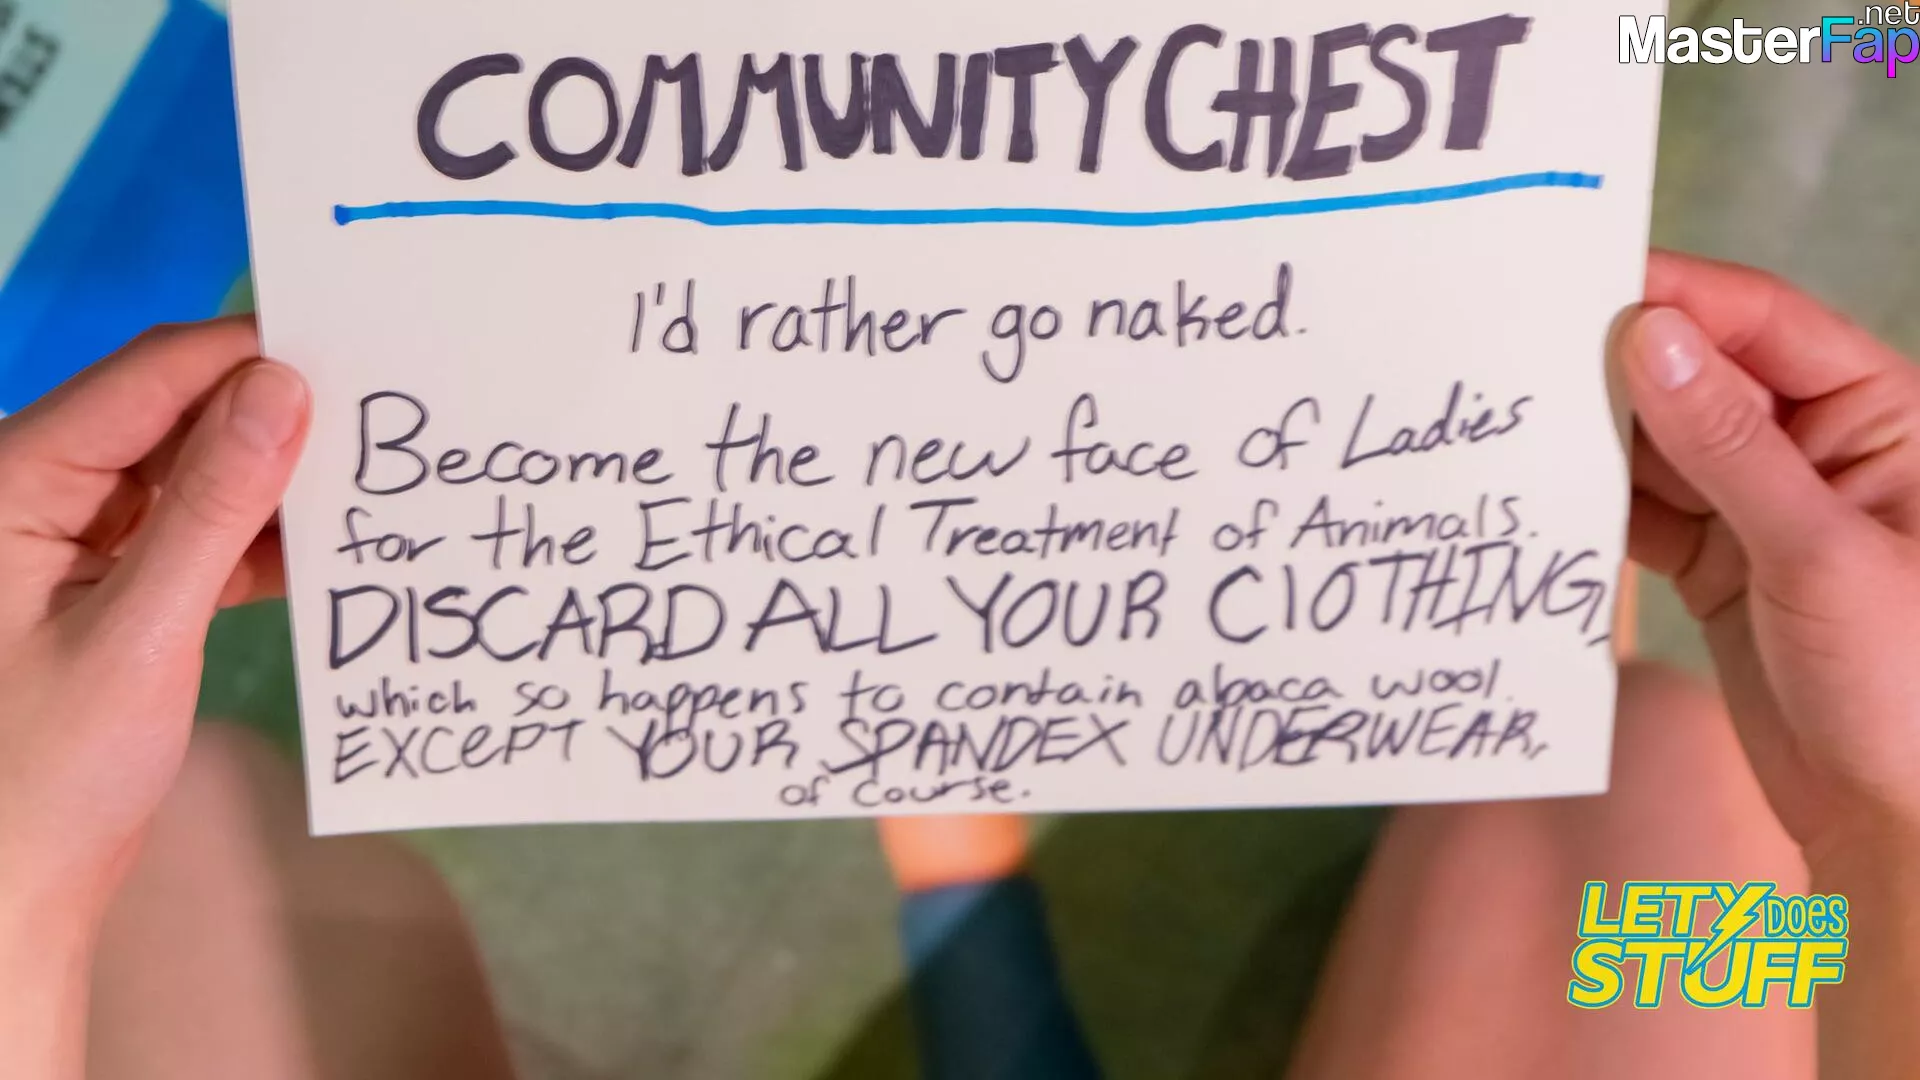 MasterFap.net
COMMUNITY CHEST
I'd rather go naked.
Become the new face of Ladies
for the Ethical Treatment of Animals.
DISCARD ALL YOUR ClOTHING,
which so happens to contain alpaca wool.
EXCePT YOUR SPANDEX UNDERWEAR,
of course.
LETY DOES
STUFF